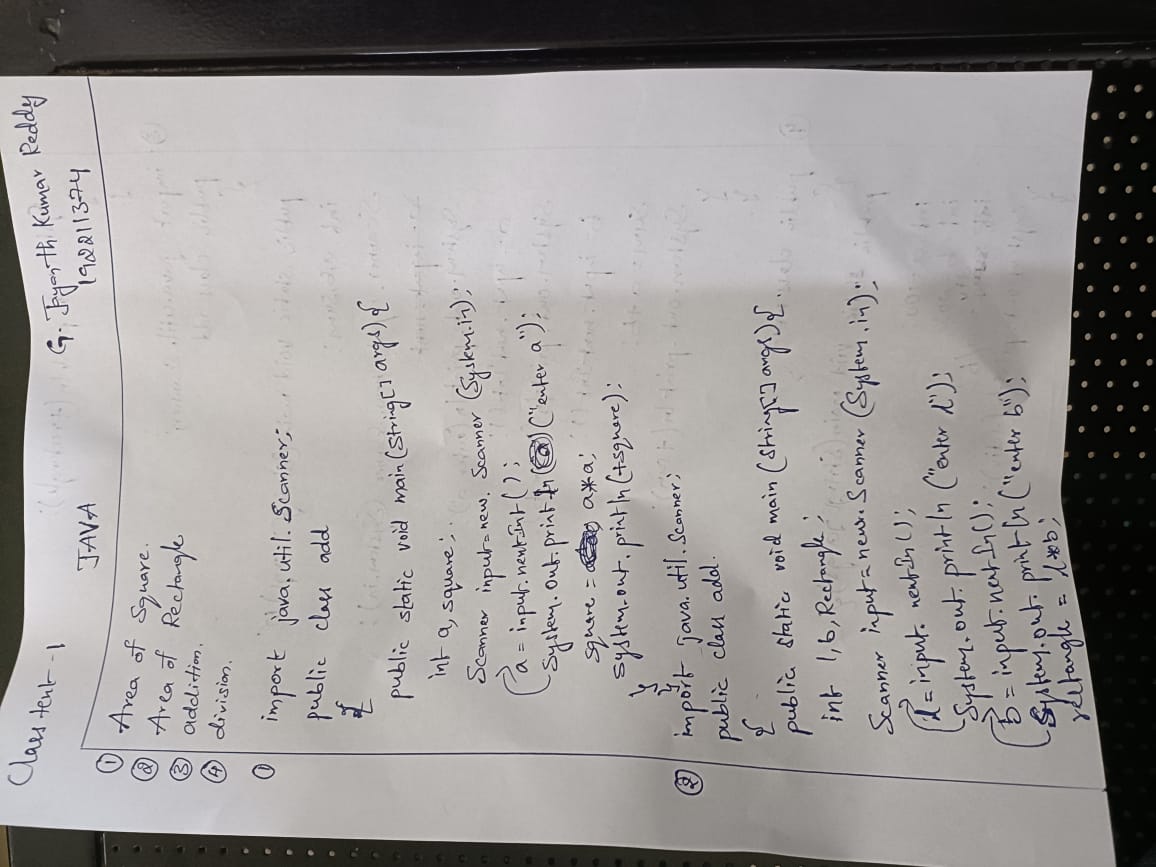 Class test-1
G. Jayanth Kumar Reddy
192211374
JAVA
① Area of Square.
② Area of Rectangle
③ addition.
④ division.
① import java.util.Scanner;
public class add
{
public static void main(String[] args){
int a, square;
Scanner input=new. Scanner (System.in);
a = input.nextInt();
System.out.println("enter a");
square = a*a;
System.out.println(+square);
}
}
② import java.util.Scanner;
public class add.
{
public static void main (String[] args){
int l, b, Rectangle;
Scanner input=new.Scanner (System.in);
l=input.nextIn();
System.out.println("enter l");
b=input.nextIn();
System.out.println("enter b");
rectangle = l*b;